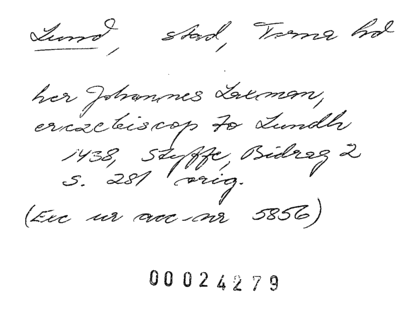 Lund, stad, Torna hd
her Johannes Laxman,
erczebiscop to Lundh
1438, Styffe, Bidrag 2
s. 281 orig.
(Exc ur acc-nr 5856)
00024279